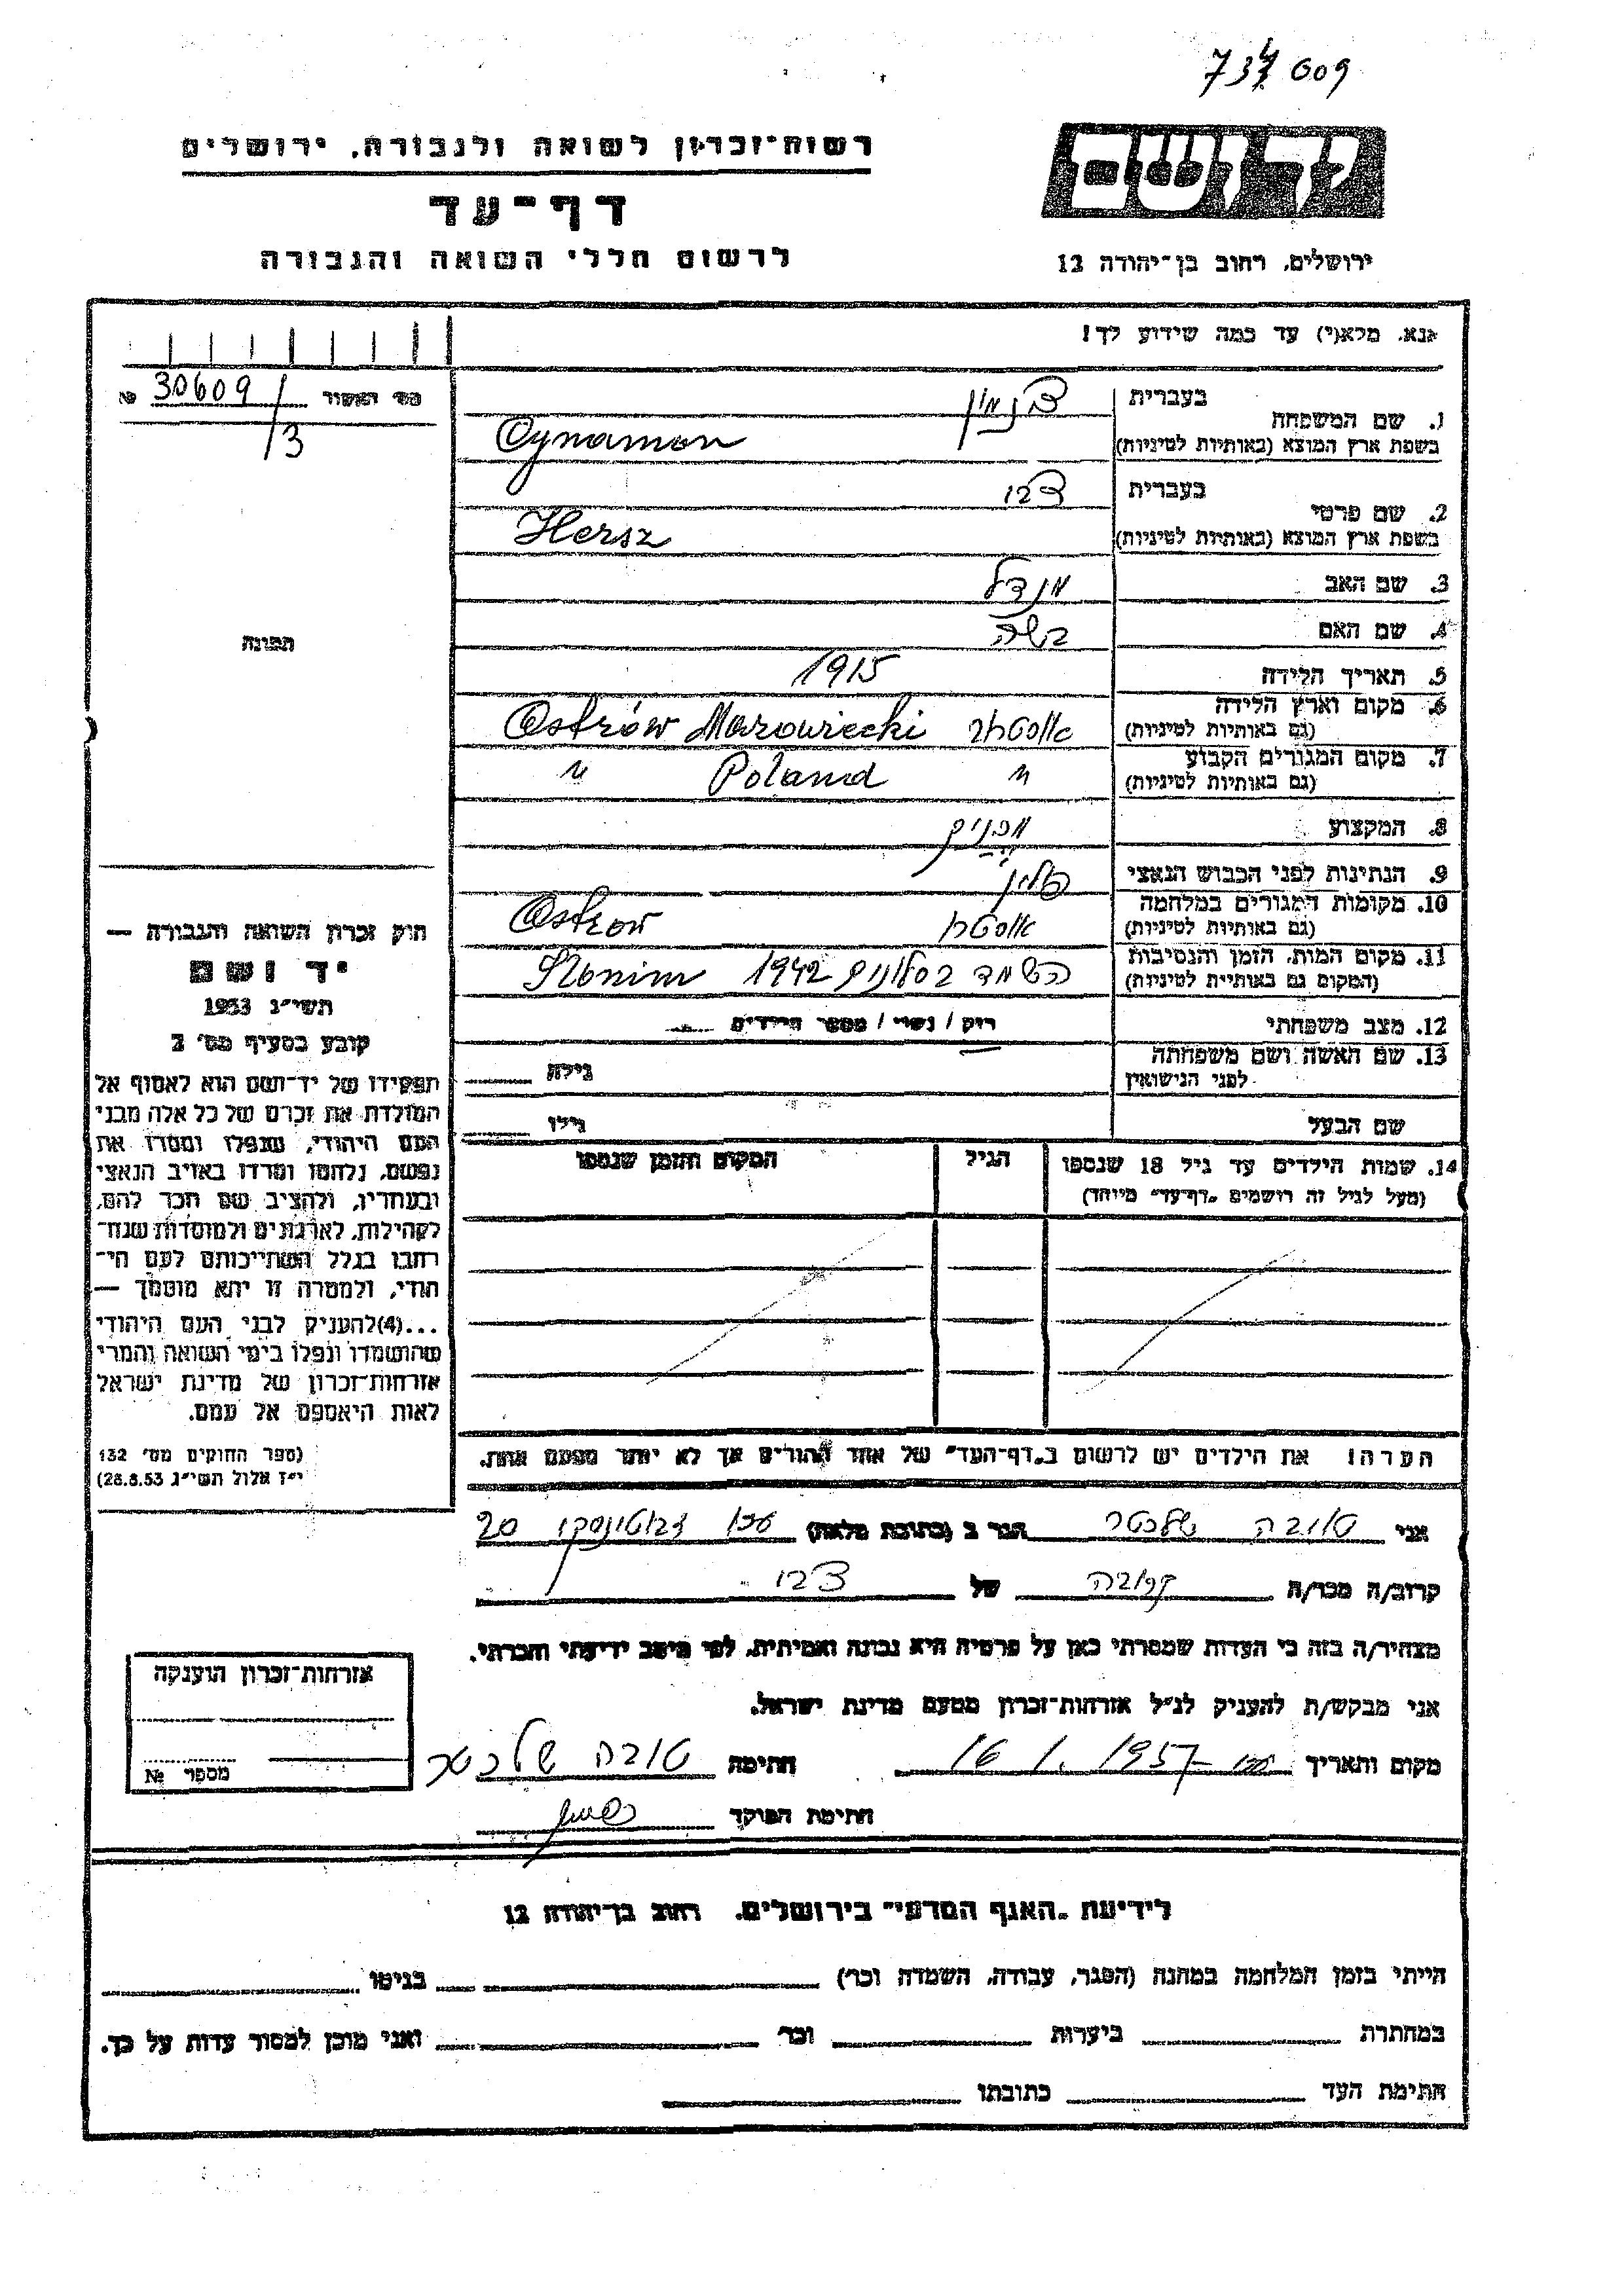 737 609
רשות־זכרון לשואה ולגבורה, ירושלים
דף־עד
לרשום חללי השואה והגבורה
יד ושם
ירושלים, רחוב בן־יהודה 12
אנא, מלא(י) עד כמה שידוע לך!
מס׳ האשור 30609 №
/3
1. שם המשפחה
בעברית צינמון
בשפת ארץ המוצא (באותיות לטיניות) Cynamon
2. שם פרטי
בעברית צבי
בשפת ארץ המוצא (באותיות לטיניות) Hersz
3. שם האב מנדל
4. שם האם
5. תאריך הלידה 1915
6. מקום וארץ הלידה
(גם באותיות לטיניות) Ostrów Mazowiecki
7. מקום המגורים הקבוע
(גם באותיות לטיניות) " Poland "
8. המקצוע
9. הנתינות לפני הכבוש הנאצי פולין
10. מקומות המגורים במלחמה
(גם באותיות לטיניות) Ostrow
11. מקום המות, הזמן והנסיבות
(המקום גם באותיות לטיניות) הושמד בסלונים 1942 Slonim
12. מצב משפחתי רוק / נשוי / מספר הילדים
13. שם האשה ושם משפחתה
לפני הנישואין גילה
שם הבעל גילו
14. שמות הילדים עד גיל 18 שנספו הגיל המקום והזמן שנספו
(מעל לגיל זה רושמים "דף־עד" מיוחד)
הערה! את הילדים יש לרשום ב"דף־העד" של אחד ההורים אך לא יותר מפעם אחת.
תמונה
חוק זכרון השואה והגבורה —
יד ושם
תשי״ג 1953
קובע בסעיף מס׳ 2
תפקידו של יד־ושם הוא לאסוף אל
המולדת את זכרם של כל אלה מבני
העם היהודי, שנפלו ומסרו את
נפשם, נלחמו ומרדו באויב הנאצי
ובעוזריו, ולהציב שם וזכר להם,
לקהילות, לארגונים ולמוסדות שנח־
רבו בגלל השתייכותם לעם הי־
הודי, ולמטרה זו יהא מוסמך —
...(4)להעניק לבני העם היהודי
שהושמדו ונפלו בימי השואה והמרי
אזרחות־זכרון של מדינת ישראל
לאות היאספם אל עמם.
(ספר החוקים מס׳ 132
י״ז אלול תשי״ג 28.8.53)
אני טובה שלכטר הגר ב (כתובת מלאה) ז׳בוטינסקי 20
קרוב/ה מכר/ה קרובה של צבי
מצהיר/ה בזה כי העדות שמסרתי כאן על פרטיה היא נכונה ואמיתית, לפי מיטב ידיעתי והכרתי.
אני מבקש/ת להעניק לנ״ל אזרחות־זכרון מטעם מדינת ישראל.
מקום ותאריך 16 1. 1957 חתימה טובה שלכטר
חתימת הפוקד
אזרחות־זכרון הוענקה
מספר №
לידיעת "האגף המדעי" בירושלים, רחוב בן־יהודה 12
הייתי בזמן המלחמה במחנה (הסגר, עבודה, השמדה וכו׳) בגיטו
במחתרת ביערות וכו׳ ואני מוכן למסור עדות על כך.
חתימת העד כתובתו